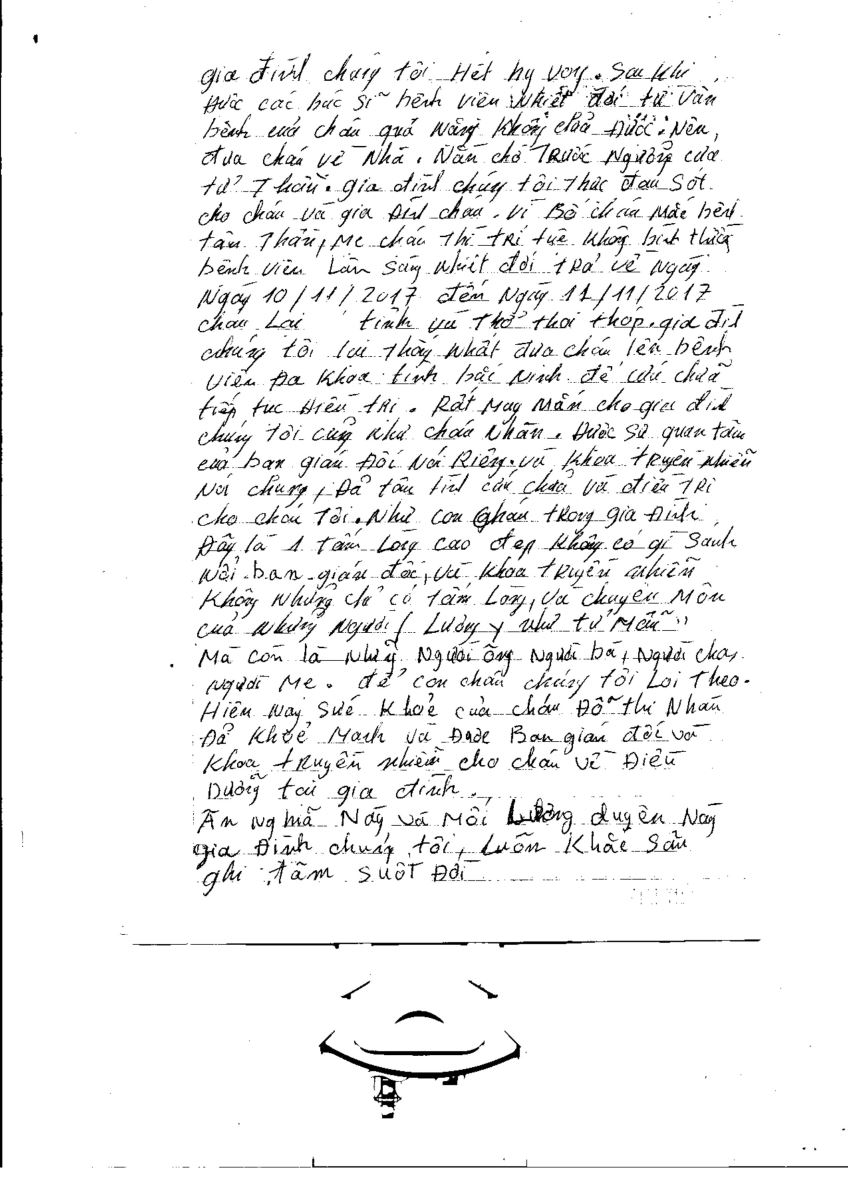 gia đình chúng tôi Hết hy vọng. Sau khi
Được các bác sĩ bệnh viên Nhiệt đới tư vấn
bệnh của cháu quá nặng không chữa Được. Nên,
đưa cháu về Nhà. Nằm chờ Trước Ngưỡng cửa
tử Thần. gia đình chúng tôi thức đau sót
cho cháu và gia Đình cháu. Vì Bố cháu Mắc bệnh
tâm Thần, Mẹ cháu Thì trí tuệ không bình thường
bệnh viên Lâm Sàng Nhiệt đới Trả về Ngày
Ngày 10/11/2017 đến Ngày 11/11/2017
cháu Lại tỉnh và Thở thoi thóp. gia đình
chúng tôi lại Thống Nhất đưa cháu lên bệnh
viên Đa khoa tỉnh bắc Ninh để cứu chữa
tiếp tục Điều trị. Rất May Mắn cho gia đình
chúng tôi cũng như cháu Nhàn. Được sự quan tâm
của ban giám Đốc Nói Riêng. và khoa truyền nhiễm
Nói chung, Đã tâm tình cứu chữa và điều trị
cho cháu tôi. Như con cháu trong gia Đình
Đây là 1 tấm Lòng cao đẹp không có gì sánh
Nổi. ban giám đốc, và khoa truyền nhiễm
không những chỉ có tấm lòng, và chuyên Môn
của những Người ( Lương y như từ Mẫu "
Mà còn là những Người ông Người bà, Người cha,
Người Mẹ. để con cháu chúng tôi Loi Theo.
Hiên Nay Sức khoẻ của cháu Đỗ thị Nhàn
Đã khoẻ Mạnh và Được Ban giám đốc và
khoa truyền nhiễm cho cháu về Điều
Dưỡng tại gia đình.
Ân nghĩa Này và Mối Lương duyên Này
gia Đình chúng tôi, Luôn khắc sâu
ghi tâm suốt Đời